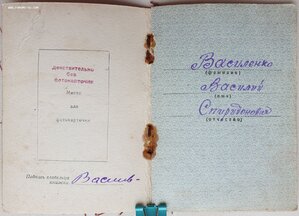 действительно
без
фотокарточки
Место
для
фотокарточки
Подпись владельца
книжки
Василенко
(фамилия)
Василий
(имя)
Спиридонович
(отчество)